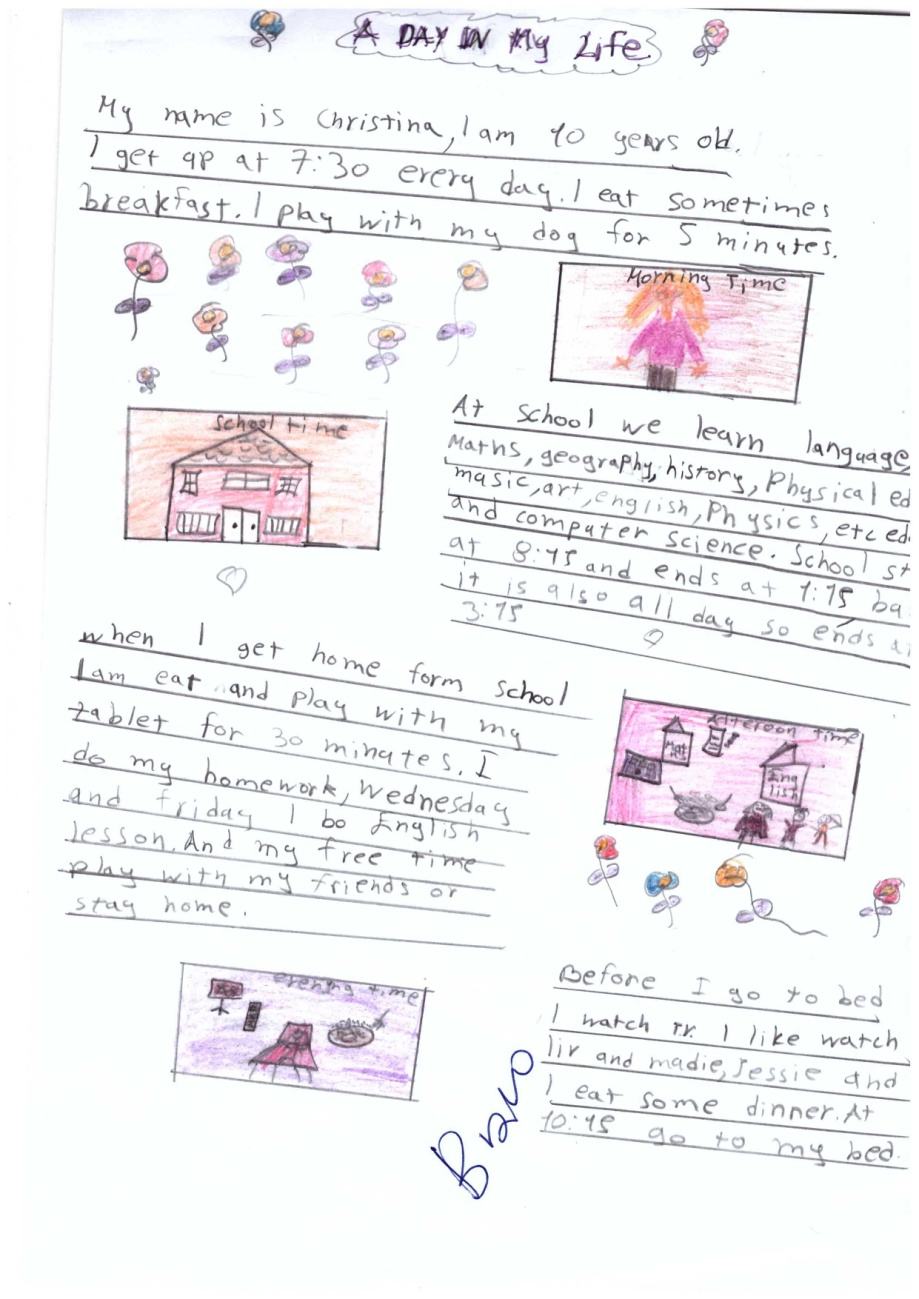 A DAY IN My Life
My name is Christina, I am 10 years old.
I get up at 7:30 every day. I eat sometimes
breakfast. I play with my dog for 5 minutes.
Morning Time
School time
At school we learn language,
Maths, geography, history, Physical ed
masic, art, english, Physics, etc ed
and computer science. School st
at 8:15 and ends at 1:15 ba
it is also all day so ends a
3:15
when I get home form school
I am eat and play with my
tablet for 30 minutes. I
do my homework, Wednesday
and friday I bo English
lesson. And my free time
play with my friends or
stay home.
afteroon time
Mat
Eng
lish
evening time
Before I go to bed
I watch TV. I like watch
liv and madie, Jessie and
I eat some dinner. At
10:15 go to my bed.
Bravo